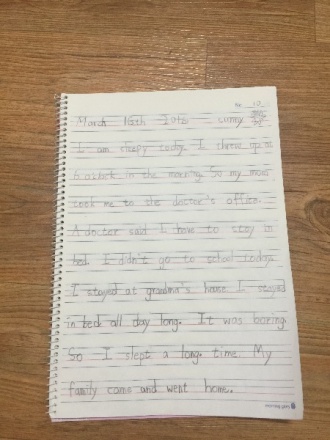 No. 10
March 16th 2016 sunny
I am sleepy today. I threw up at
6 o'clock in the morning. So my mom
took me to the doctor's office.
A doctor said I have to stay in
bed. I didn't go to school today.
I stayed at grandma's house I stayed
in bed all day long. It was boring.
So I slept a long time. My
family came and went home.
morning glory